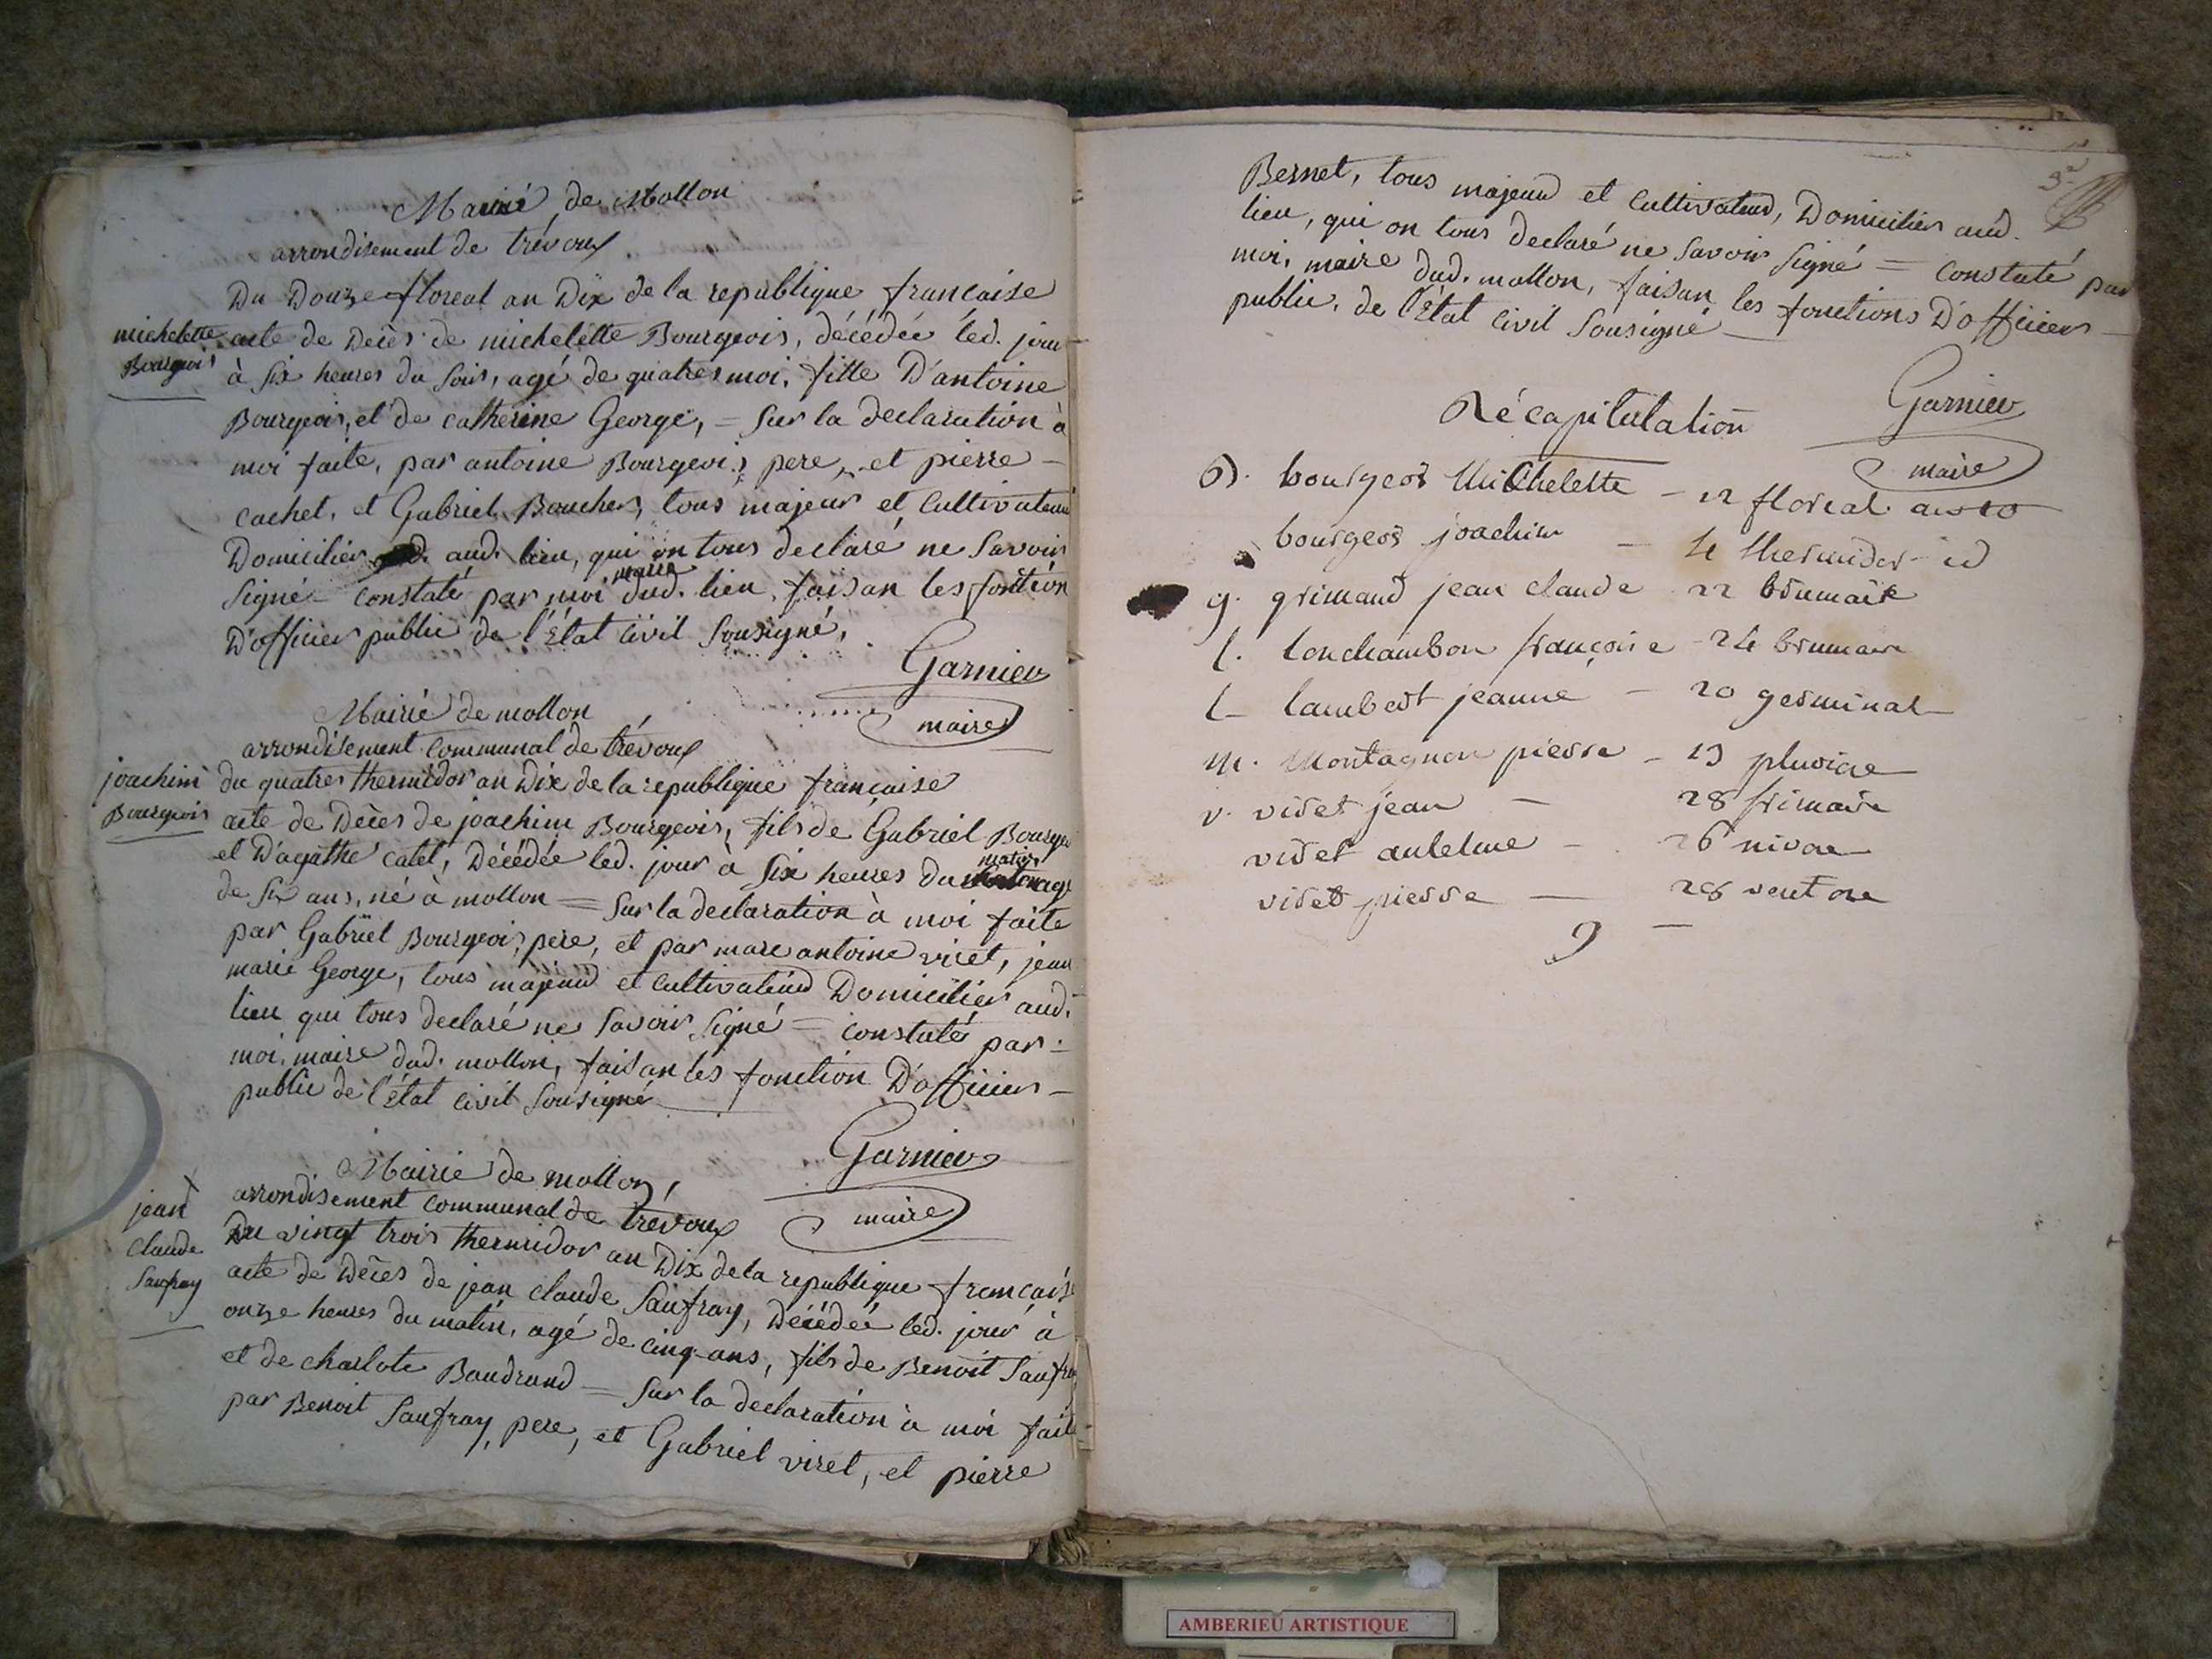 Mairié de Mollon
arrondisement de trévoux
Du Douze floreal an Dix de la republique française
michelette Bourgeois
acte de Decès de michelette Bourgeois, décédée led. jour
à six heures du soir, agé de quatres moi, fille D'antoine
Bourgeois, et de catherine George, = sur la declaration à
moi faite, par antoine Bourgeois pere, et pierre –
cachet, et Gabriel Boucher, tous majeur et Cultivateurs
Domicilier aud. lieu, qui on tous declaré ne savoir
signé – constaté par moi maire dud. lieu, faisan les fontion
D'officier public de l'État Civil sousigné,
Garnier
maire
Mairié de mollon
arrondisement communal de trévoux
joachim Bourgeois
du quatres thermidor an Dix de la republique française
acte de Decès de joachim Bourgeois, fils de Gabriel Bourgeois
et D'agathe catel, Décédée led. jour à Six heures du matin agé
de six ans, né à mollon = sur la declaration à moi faite
par Gabriel Bourgeois pere, et par marc antoine viret, jean
marie George, tous majeurd et Cultivateurd Domicilier aud.
lieu qui tous declaré ne savoir signé = constaté par –
moi, maire dud. mollon, faisan les fonction D'officier –
public de l'État Civil sousigné
Garnier
maire
Mairie de mollon,
arrondisement communal de trévoux
jean claude Saufray
Du vingt trois thermidor an Dix de la republique francaise
acte de Decès de jean claude Saufray, Décédée led. jour à
onze heures du matin, agé de cinq ans, fils de Benoit Saufray
et de charlote Baudrand = sur la declaration à moi faite
par Benoit Saufray, pere, et Gabriel viret, et pierre
Bernet, tous majeurd et Cultivateurd, Domicilier aud.
lieu, qui on tous declaré ne savoir signé = constaté par
moi, maire dud. mollon, faisan les fonctions D'officier –
public, de l'État Civil Sousigné
Garnier
maire
Récapitulation
B. bourgeois Michelette – 12 floreal an 10
bourgeois joachim – 4 thermidor id
g. grimaud jean claude 22 brumaire
l. lonchambon françoise – 24 brumaire
l – lambert jeanne – 20 germinal
m. Montagnon pierre – 13 pluviose
v. viret jean – 28 frimaire
viret antelme – 26 nivose
viret pierre – 28 ventose
9 –
AMBERIEU ARTISTIQUE